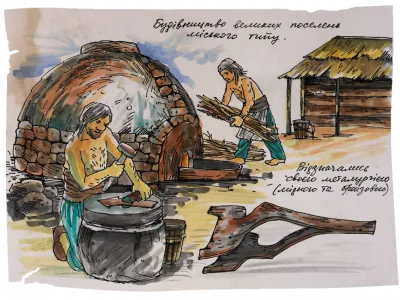 Будівництво великих поселень
міського типу.
Відзначались
своєю металургією
(мідною та бронзовою)